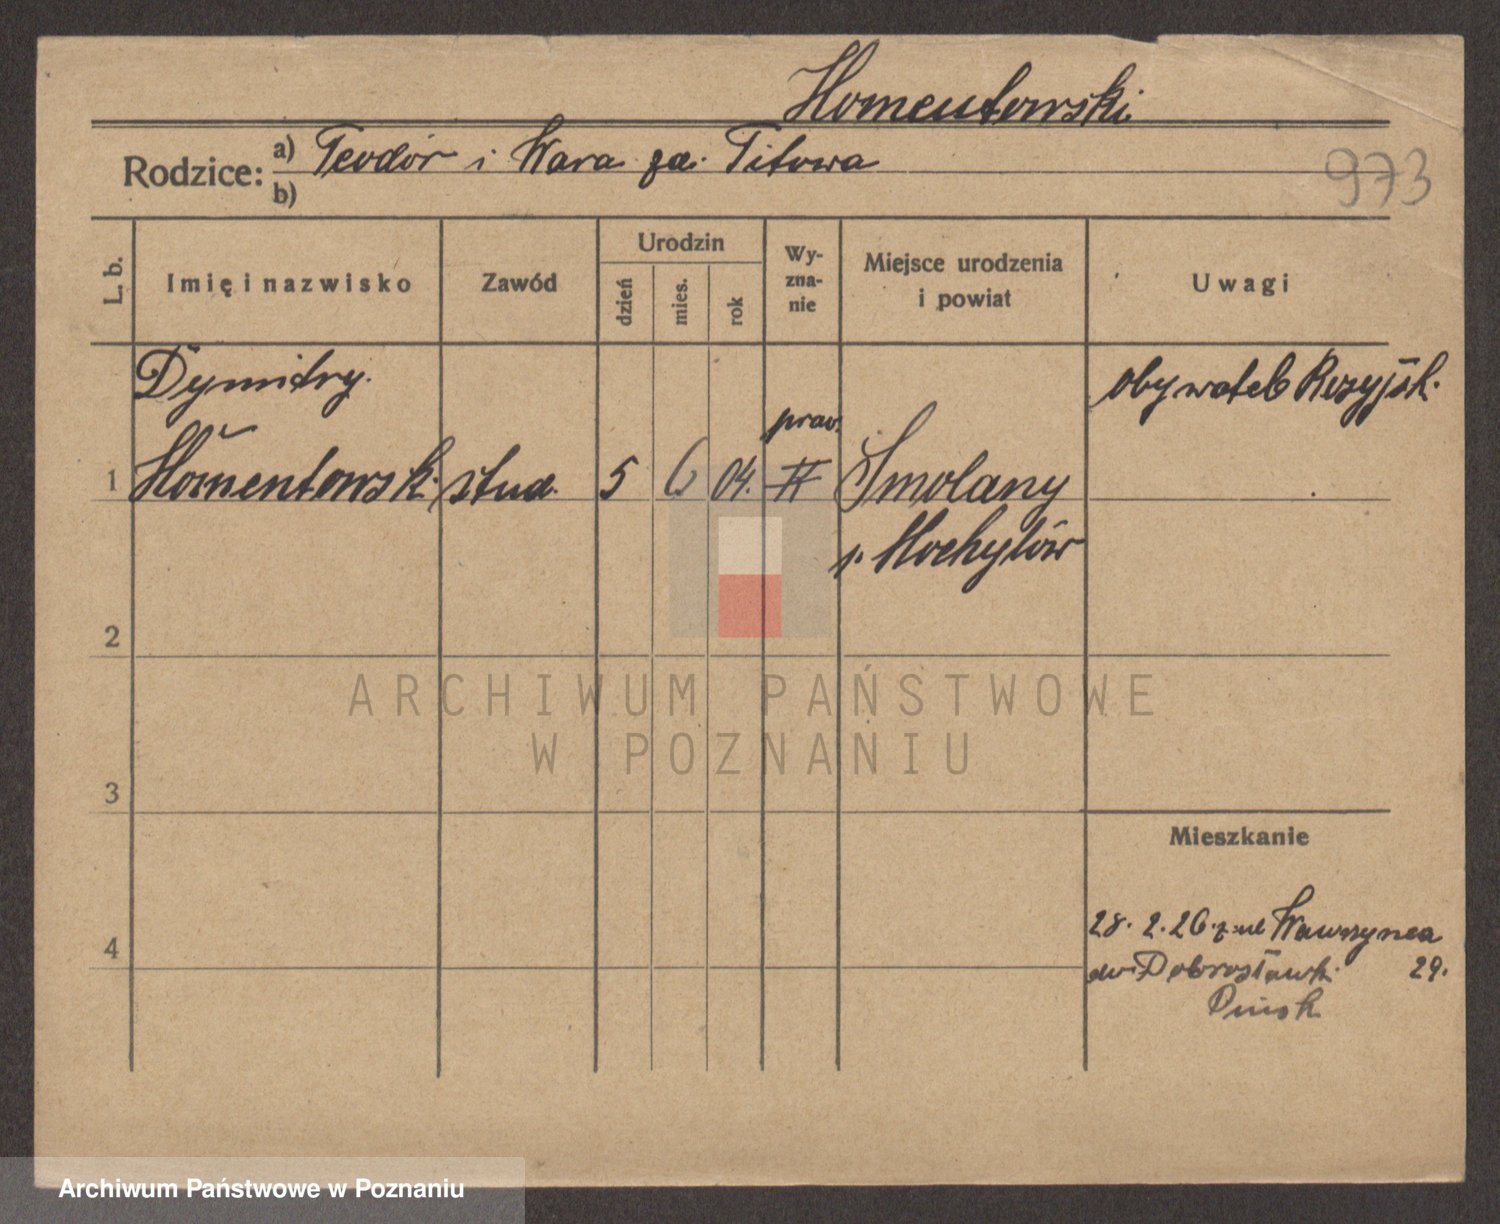 Homentowski
Rodzice: a) Teodor i Wara zd. Titowa
b)
973
L. b.
Imię i nazwisko
Zawód
Urodzin
dzień
mies.
rok
Wy-
zna-
nie
Miejsce urodzenia
i powiat
Uwagi
Dymitry
obywatel Rosyjsk.
praw.
1 Homentowsk. stud. 5 6 04. Smolany
p. Mochylów
2
ARCHIWUM PAŃSTWOWE
W POZNANIU
3
Mieszkanie
4
28. 2. 26. z ul Wawrzynca
do Dobrosławk. 29.
Pinsk
Archiwum Państwowe w Poznaniu